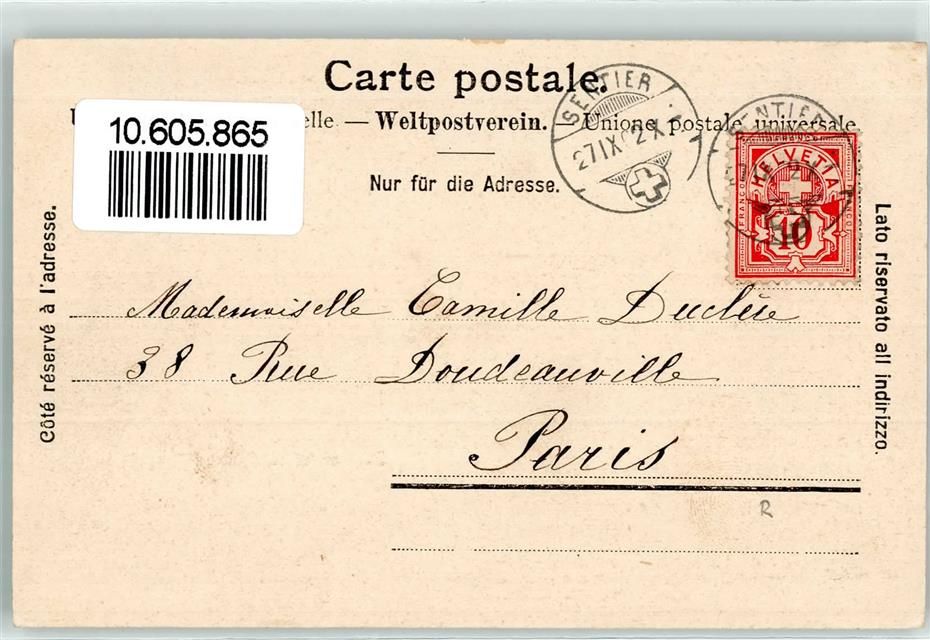 Carte postale.
10.605.865
elle. — Weltpostverein. — Unione postale universale
Nur für die Adresse.
SENTIER
27 IX 02
SENTIER
HELVETIA
FRANCO
10
Côté réservé à l'adresse.
Lato riservato all indirizzo.
Mademoiselle Camille Duclère
38 Rue Doudeauville
Paris
R